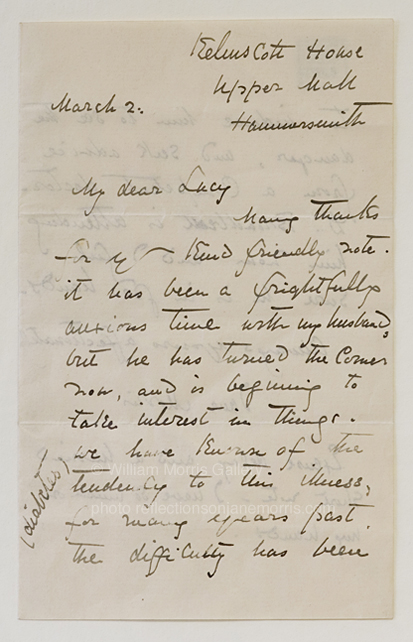 Kelmscott House
Upper Mall
Hammersmith
March 2.
My dear Lucy
Many thanks
for yr kind friendly note.
it has been a frightfully
anxious time with my husband,
but he has turned the corner
now, and is beginning to
take interest in things.
we have known of the
tendency to this illness,
(diabetes)
for many years past.
the difficulty has been
William Morris Gallery
photo reflectionsonjanemorris.com